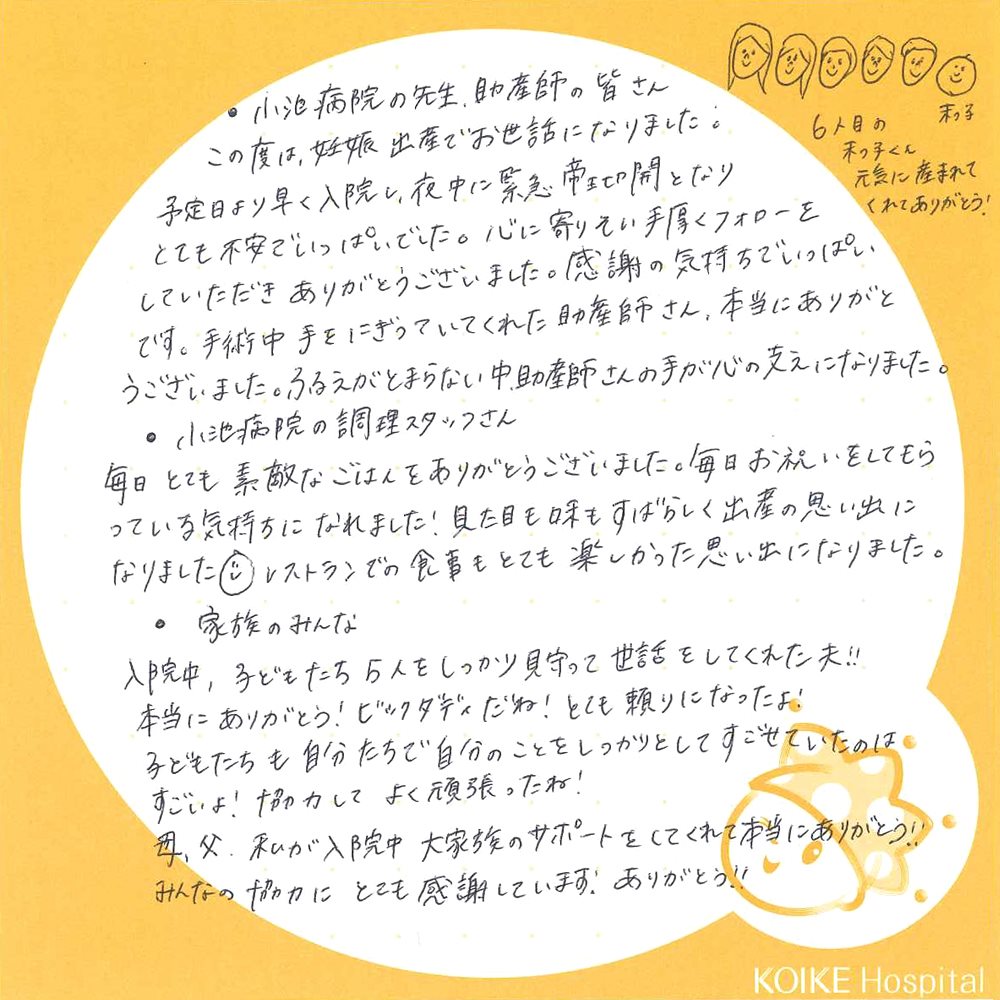 ・小池病院の先生、助産師の皆さん
この度は、妊娠 出産でお世話になりました。
予定日より早く入院し、夜中に緊急帝王切開となり
とても不安でいっぱいでした。心に寄りそい手厚くフォローを
していただき ありがとうございました。感謝の気持ちでいっぱい
です。手術中 手をにぎっていてくれた助産師さん、本当にありがと
うございました。ふるえがとまらない中、助産師さんの手が心の支えになりました。
・小池病院の調理スタッフさん
毎日 とても 素敵なごはんをありがとうございました。毎日お祝いをしてもら
っている気持ちに なれました！見た目も味もすばらしく出産の思い出に
なりました レストランでの食事もとても 楽しかった思い出になりました。
・家族のみんな
入院中、子どもたち5人をしっかり見守って 世話をしてくれた夫!!
本当に ありがとう！ビックダディだね！とても 頼りになったよ！
子どもたちも 自分たちで自分のことをしっかりとしてすごせていたのは
すごいよ！協力して よく頑張ったね！
母、父、私が入院中 大家族のサポートをしてくれて本当にありがとう!!
みんなの協力に とても感謝しています！ありがとう!!
末っ子
6人目の
末っ子くん
元気に産まれて
くれてありがとう！
KOIKE Hospital